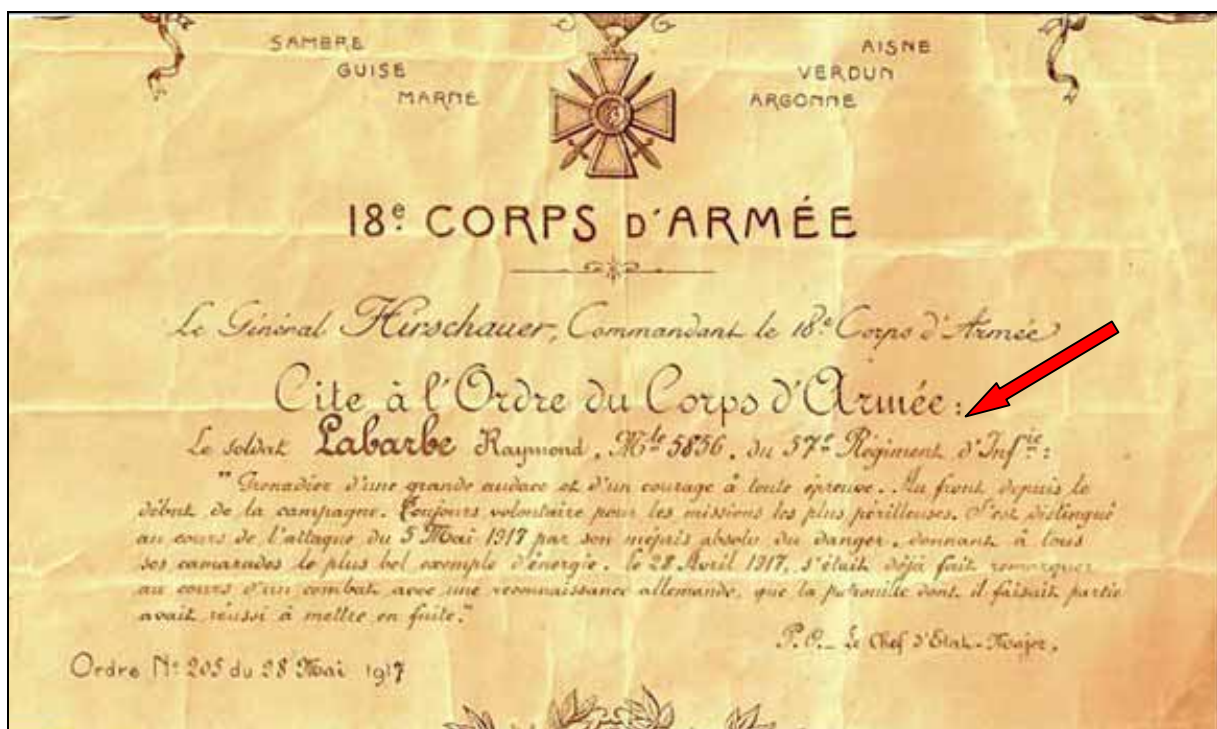 SAMBRE
GUISE
MARNE
AISNE
VERDUN
ARGONNE
18e CORPS D'ARMÉE
Le Général Hirschauer, Commandant le 18e Corps d'Armée
Cite à l'Ordre du Corps d'Armée :
Le soldat Labarbe Raymond, Mle 5856, du 57e Régiment d'Infie :
"Grenadier d'une grande audace et d'un courage à toute épreuve. Au front depuis le
début de la campagne. Toujours volontaire pour les missions les plus périlleuses. S'est distingué
au cours de l'attaque du 5 Mai 1917 par son mépris absolu du danger, donnant à tous
ses camarades le plus bel exemple d'énergie. le 28 Avril 1917, s'était déjà fait remarquer
au cours d'un combat avec une reconnaissance allemande, que la patrouille dont il faisait partie
avait réussi à mettre en fuite."
P.O. _ Le Chef d'Etat-Major.
Ordre No 205 du 28 Mai 1917